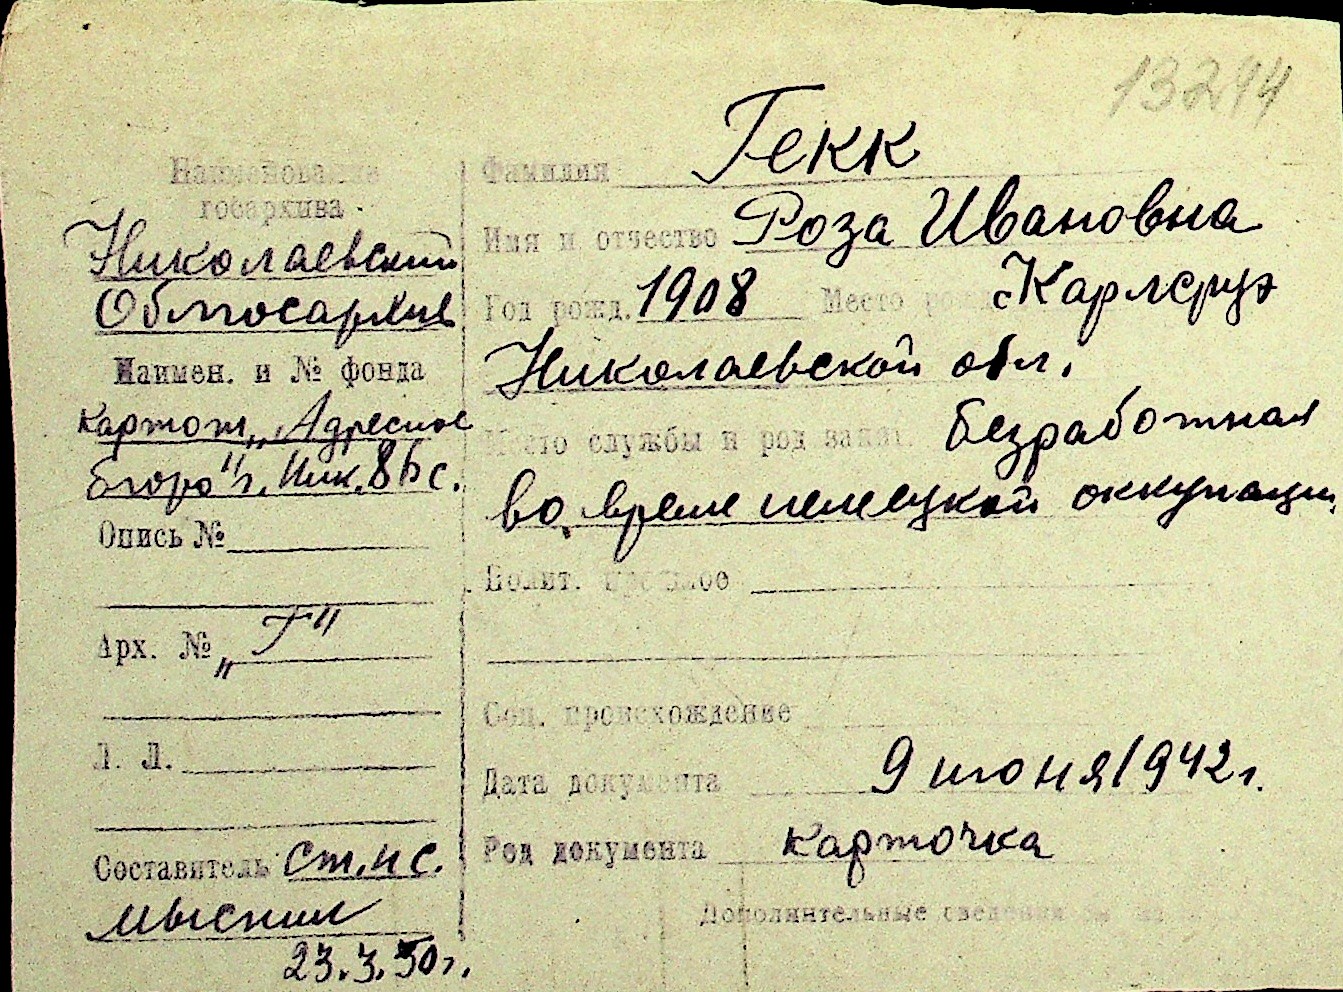 13244
Наименование
госархива
Николаевский
Облгосархив
Наимен. и № фонда
Картот. „Адресное
бюро" г. Ник. 86 с.
Опись №
Арх. № „Г"
Л. Л.
Составитель ст. н с.
23.3.50 г.
Фамилия Гекк
Имя и отчество Роза Ивановна
Год рожд. 1908 Место рожд. с Карлсруэ
Николаевской обл.
Место службы и род занят. безработная
во время немецкой оккупации
Полит. прошлое
Соц. происхождение
Дата документа 9 июня 1942 г.
Род документа карточка
Дополнительные сведения